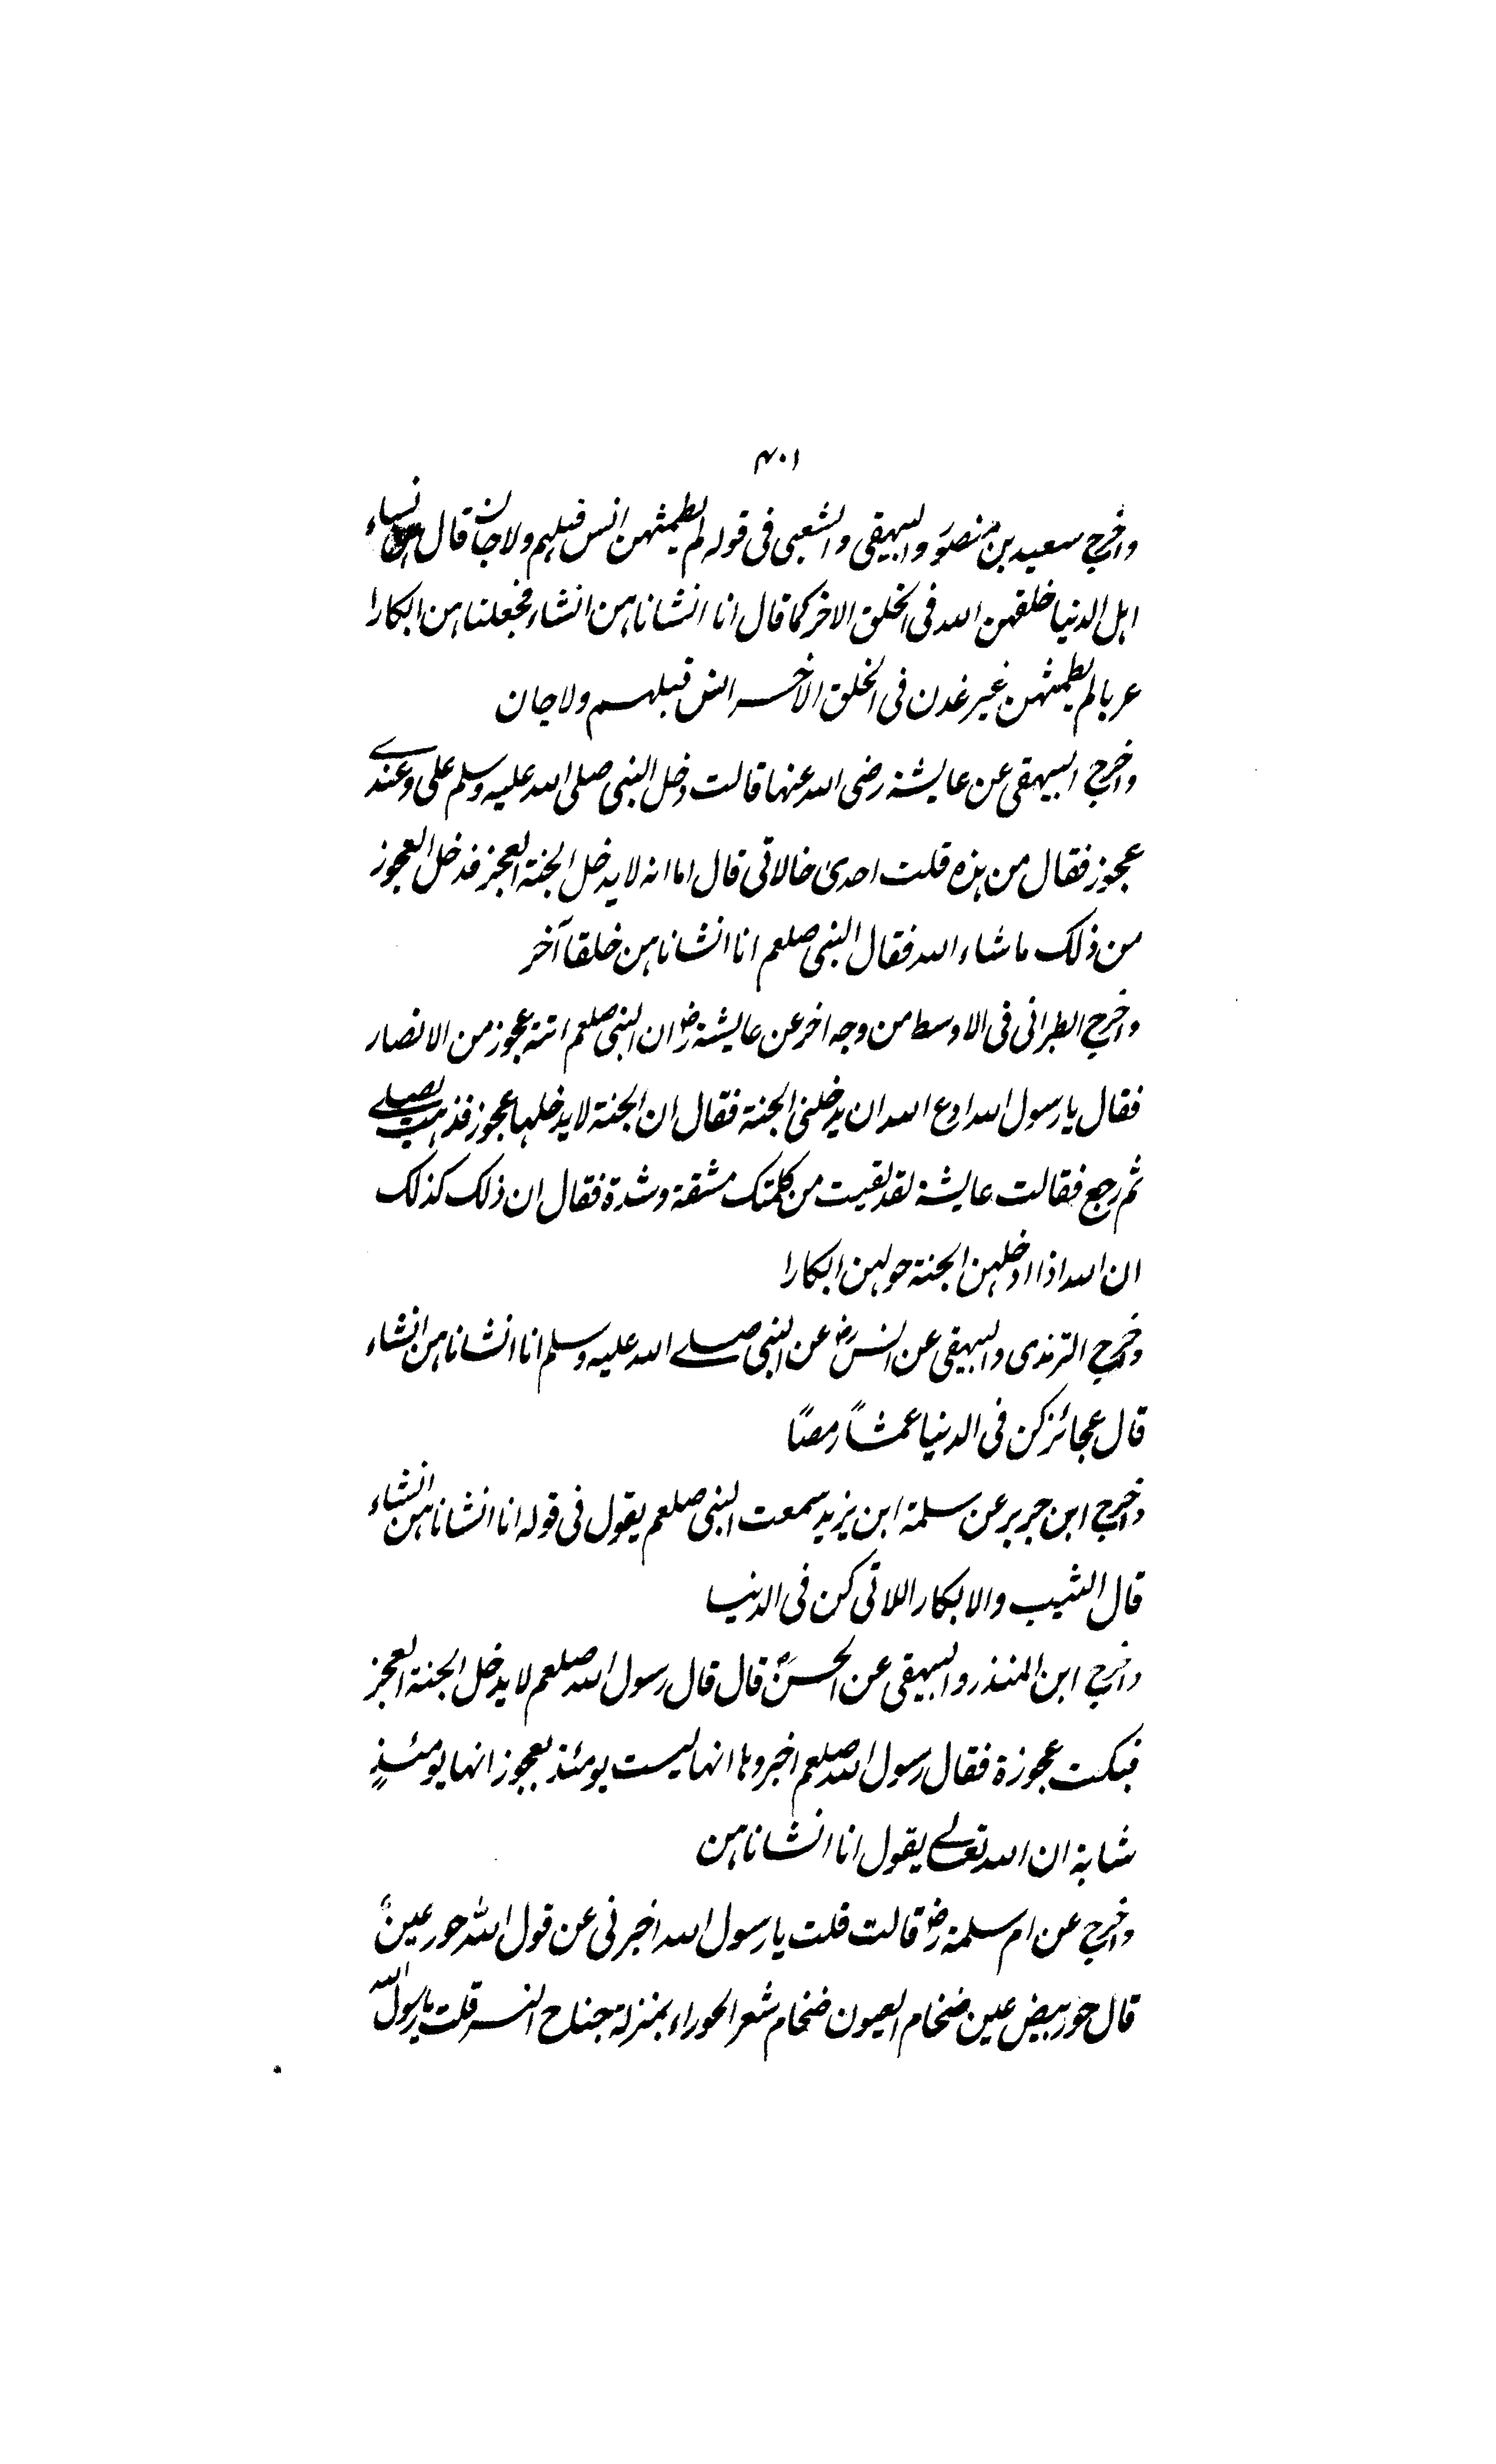 ۴۰۱
واخرج سعید بن منصور والبیهقی والشعبی فی قوله لم یطمثهن انس قبلهم ولا جان قال نساء
اهل الدنیا خلقهن الله فی الخلق الاخر کما قال انا انشاناهن انشاء فجعلناهن ابکارا
عربا لم یطمثهن غیر غدن فی الخلق الاخر انس قبلهم ولا جان
واخرج البیهقی عن عایشة رضی الله عنها قالت دخل النبی صلی الله علیه وسلم علی وعندے
عجوز فقال من هذه قلت احدی خالاتی قال اما انه لا یدخل الجنة العجز فدخل العجوز
من ذلک ما شاء الله فقال النبی صلعم انا انشاناهن خلقا آخر
واخرج الطبرانی فی الاوسط من وجه اخر عن عایشة رض ان النبی صلعم اتته عجوز من الانصار
فقال یا رسول الله ادع الله ان یدخلنی الجنة فقال ان الجنة لا یدخلها عجوز فذهب یصلے
ثم رجع فقالت عایشة لقد لقیت من کلمتک مشقة وشدة فقال ان ذلک کذلک
ان الله اذا ادخلهن الجنة حولهن ابکارا
واخرج الترمذی والبیهقی عن انس رض عن النبی صلے الله علیه وسلم انا انشاناهن انشاء
قال عجائز کن فی الدنیا عمشاً رمصًا
واخرج ابن جریر عن سلمة ابن یزید سمعت النبی صلعم یقول فی قوله انا انشاناهن انشاء
قال الثیب والابکار اللاتی کن فی الدنیا
واخرج ابن المنذر والبیهقی عن الحسن رض قال قال رسول الله صلعم لا یدخل الجنة العجز
فبکت عجوزة فقال رسول الله صلعم اخبروها انها لیست یومئذ بعجوز انها یومئذٍ
شابة ان الله تعالے یقول انا انشاناهن
واخرج عن ام سلمة رض قالت قلت یا رسول الله اخبرنی عن قول الله حور عینٌ
قال حور بیض عین ضخام العیون ضخام شعر الحوراء بمنزلة جناح النسر قلت یا رسول الله